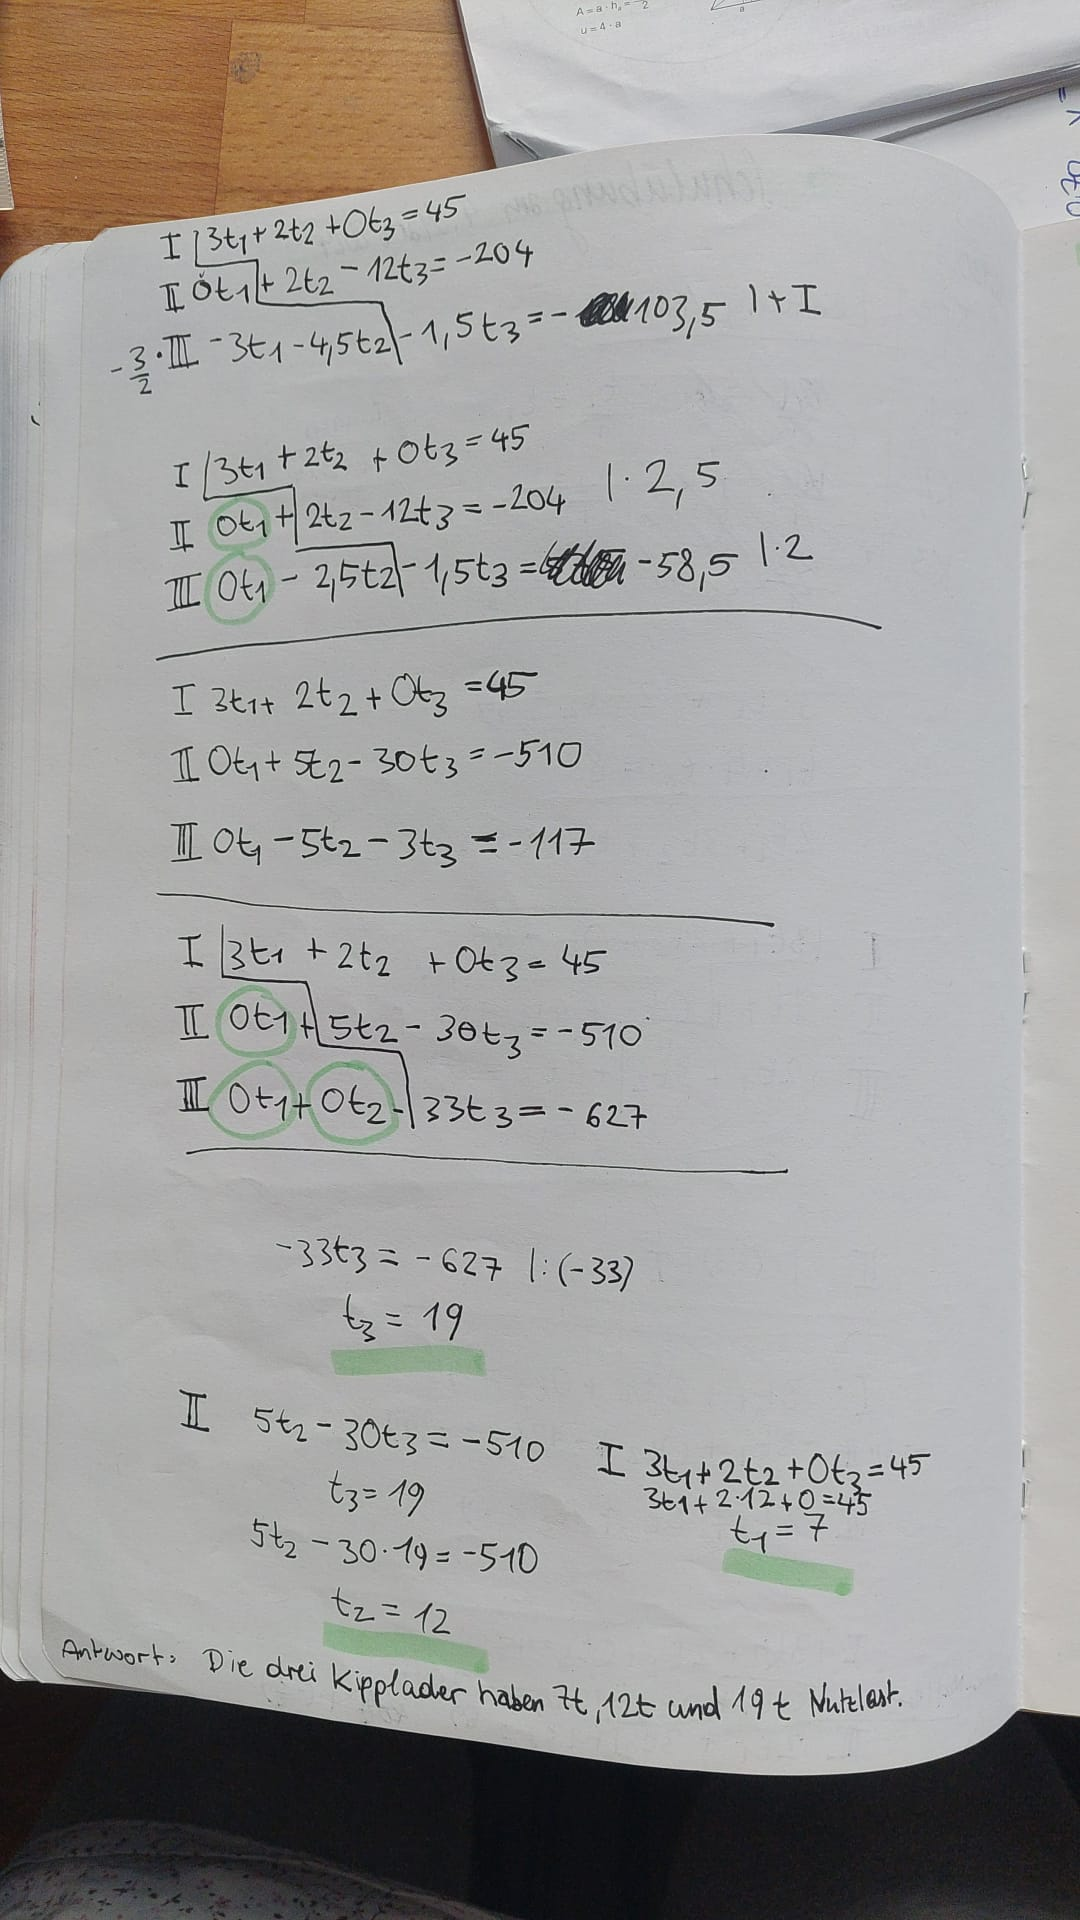 A = a · hₐ = 2
u = 4 · a
I 3t₁ + 2t₂ + 0t₃ = 45
II 0t₁ + 2t₂ - 12t₃ = -204
-3/2 · III -3t₁ - 4,5t₂ - 1,5t₃ = - 103,5 | + I
I 3t₁ + 2t₂ + 0t₃ = 45
II 0t₁ + 2t₂ - 12t₃ = -204 | · 2,5
III 0t₁ - 2,5t₂ - 1,5t₃ = -58,5 | · 2
I 3t₁ + 2t₂ + 0t₃ = 45
II 0t₁ + 5t₂ - 30t₃ = -510
III 0t₁ - 5t₂ - 3t₃ = -117
I 3t₁ + 2t₂ + 0t₃ = 45
II 0t₁ + 5t₂ - 30t₃ = -510
III 0t₁ + 0t₂ - 33t₃ = -627
-33t₃ = -627 | : (-33)
t₃ = 19
II 5t₂ - 30t₃ = -510
t₃ = 19
5t₂ - 30 · 19 = -510
t₂ = 12
I 3t₁ + 2t₂ + 0t₃ = 45
3t₁ + 2 · 12 + 0 = 45
t₁ = 7
Antwort: Die drei Kipplader haben 7t, 12t und 19t Nutzlast.